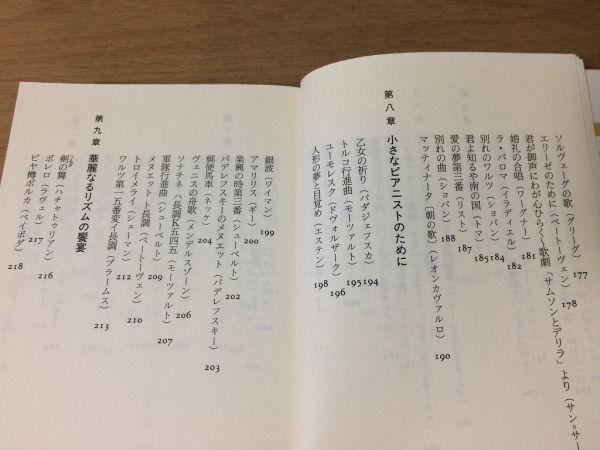 ソルヴェーグの歌（グリーグ） 177
エリーゼのために（ベートーヴェン） 178
君が御声にわが心ひらく〜歌劇「サムソンとデリラ」より（サン＝サー
婚礼の合唱（ワーグナー） 181
ラ・パロマ（イラディエル） 182
別れのワルツ（ショパン） 184
君よ知るや南の国（トマ） 185
愛の夢第三番（リスト） 187
別れの曲（ショパン） 188
マッティナータ〔朝の歌〕（レオンカヴァルロ） 190
第八章 小さなピアニストのために
乙女の祈り（バダジェフスカ） 194
トルコ行進曲（モーツァルト） 195
ユーモレスク（ドヴォルザーク） 196
人形の夢と目覚め（エステン） 198
銀波（ワイマン） 199
アマリリス（ギー） 200
楽興の時第三番（シューベルト） 202
パデレフスキーのメヌエット（パデレフスキー） 203
郵便馬車（ネッケ） 204
ヴェニスの舟歌（メンデルスゾーン）
ソナチネ・ハ長調K五四五（モーツァルト） 206
軍隊行進曲（シューベルト） 207
メヌエット・ト長調（ベートーヴェン） 209
トロイメライ（シューマン） 210
ワルツ第一五番変イ長調（ブラームス） 213
212
第九章 華麗なるリズムの饗宴
剣の舞（ハチャトゥリアン） 216
ボレロ（ラヴェル） 217
ビヤ樽ポルカ（ベイボダ） 218